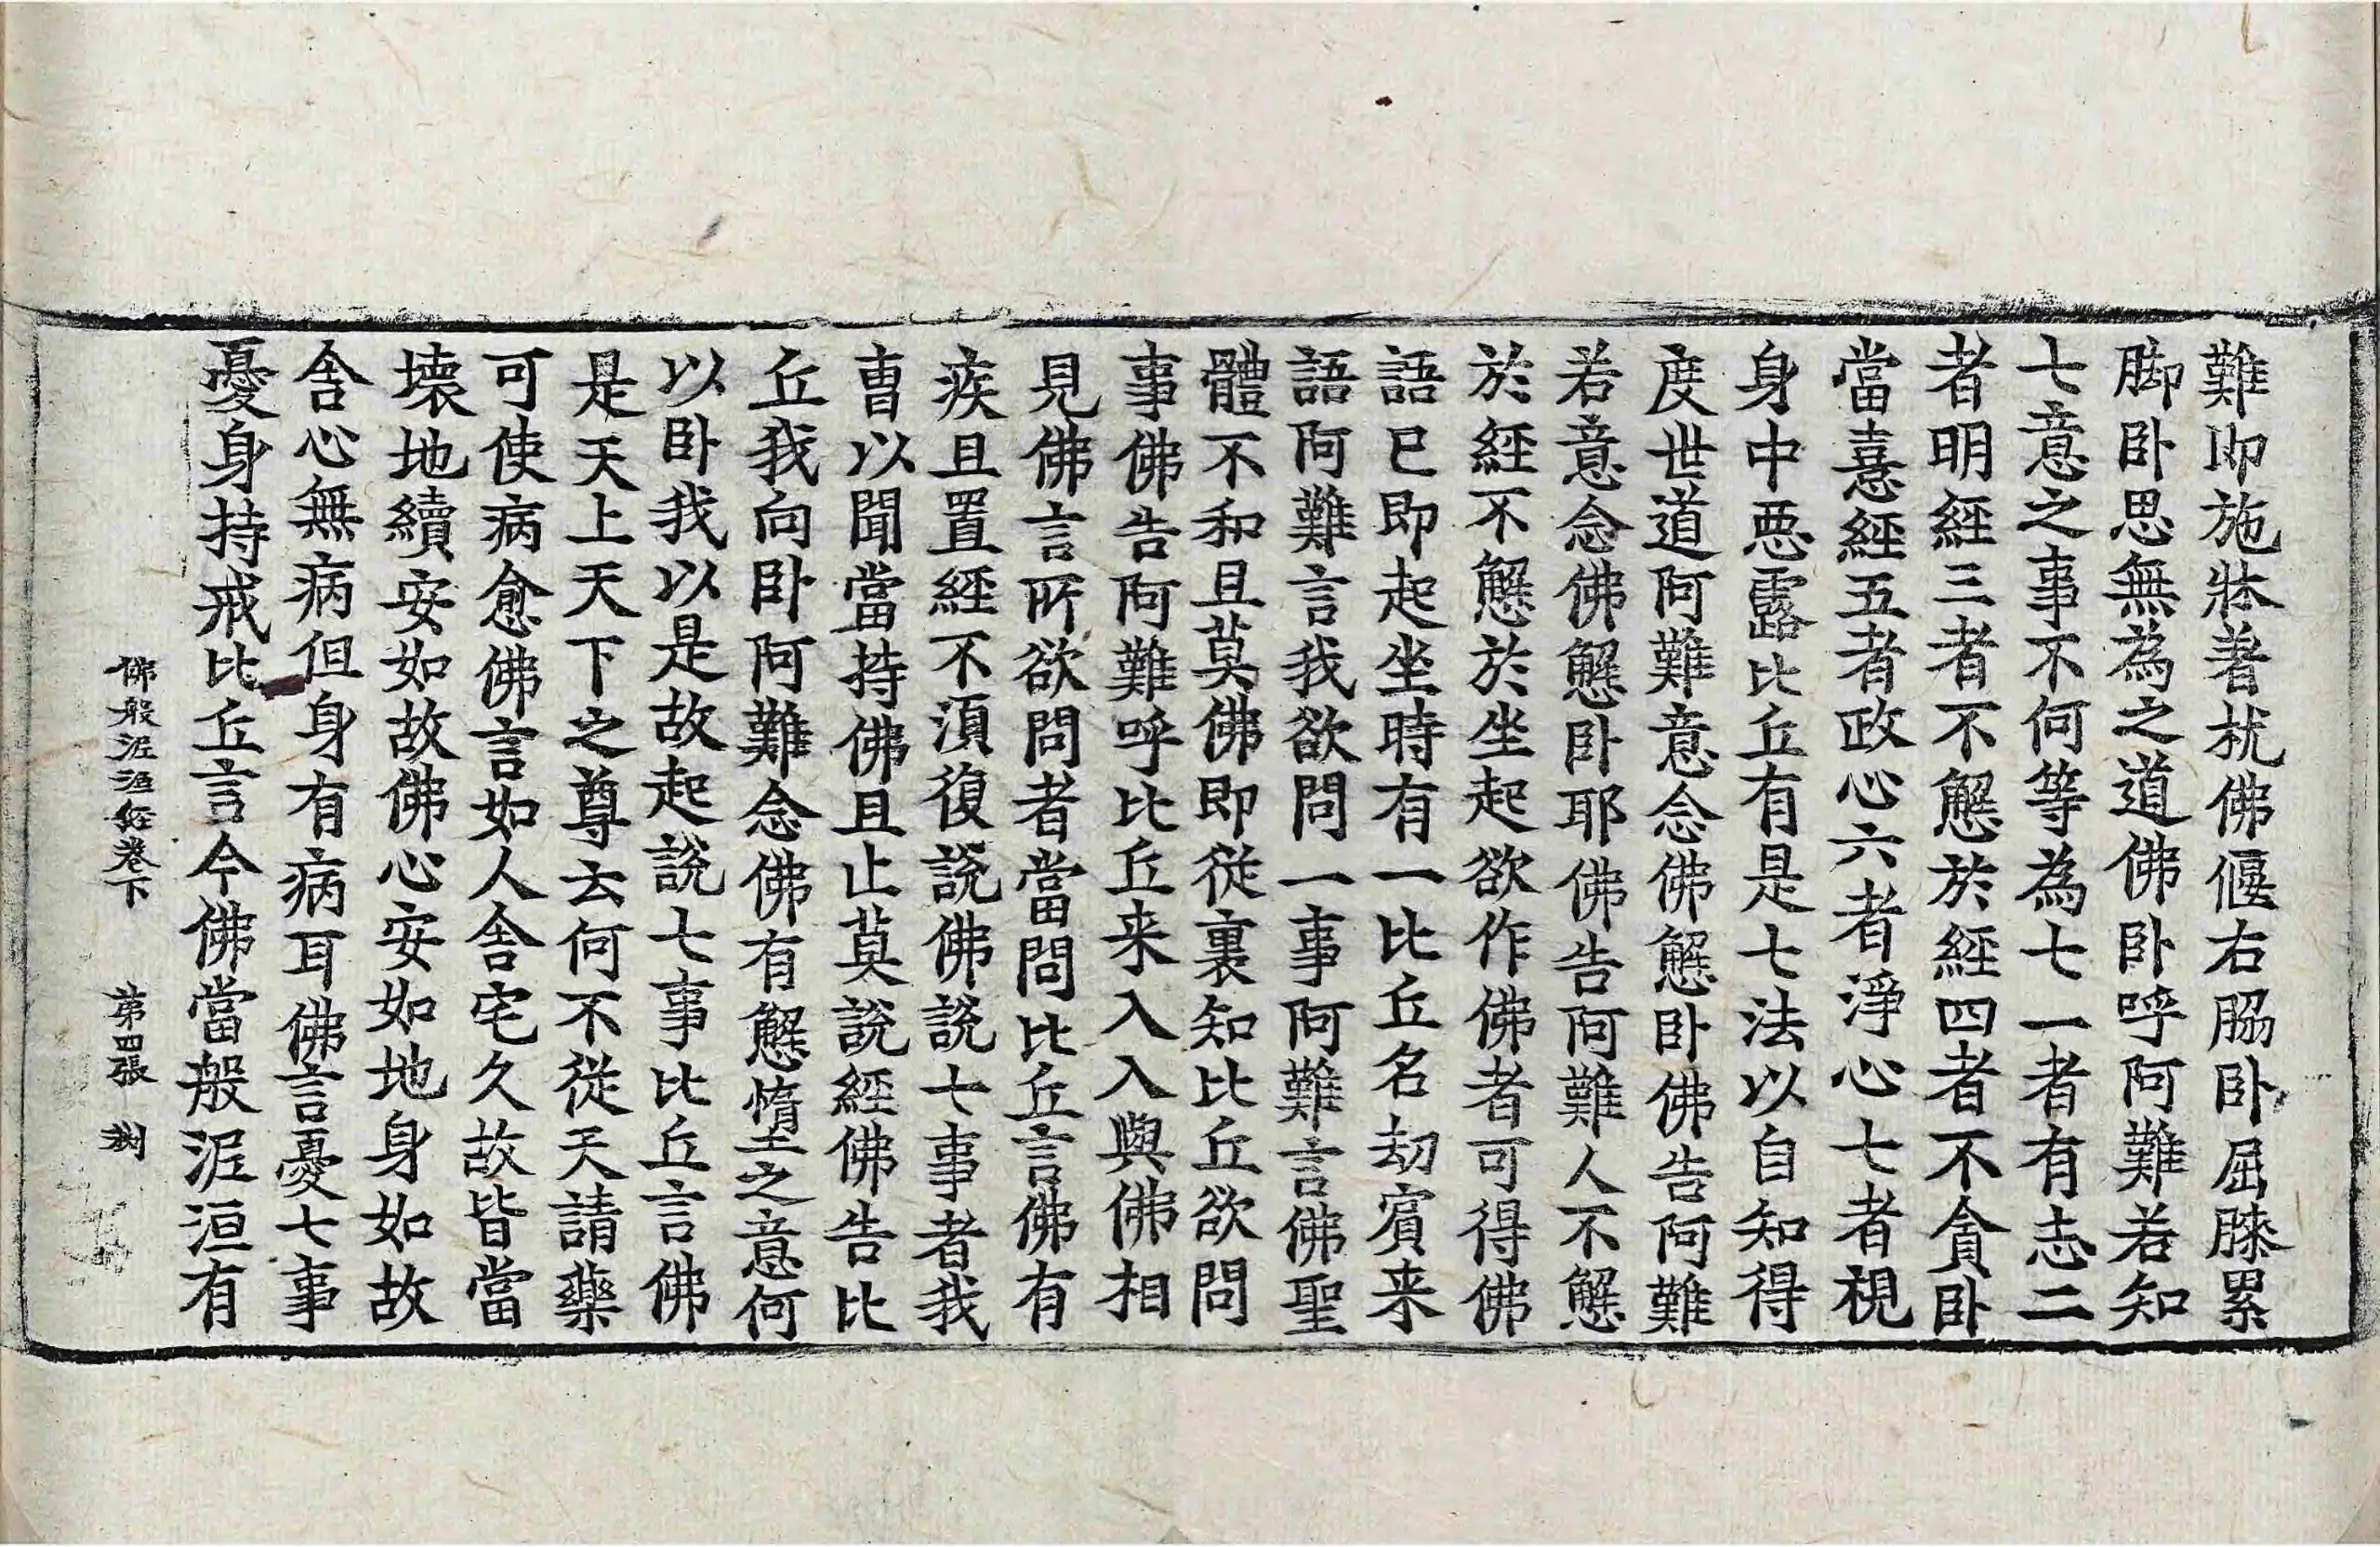 難即施牀著枕佛偃右脇卧屈膝累
脚卧思無為之道佛卧呼阿難若知
七意之事不何等為七一者有志二
者明經三者不懈於經四者不貪卧
當憙經五者政心六者淨心七者視
身中惡露比丘有是七法以自知得
度世道阿難意念佛懈卧佛告阿難
若意念佛懈卧耶佛告阿難人不懈
於經不懈於坐起欲作佛者可得佛
語已即起坐時有一比丘名劫賓来
語阿難言我欲問一事阿難言佛聖
體不和且莫佛即從裏知比丘欲問
事佛告阿難呼比丘来入入與佛相
見佛言所欲問者當問比丘言佛有
疾且置經不湏復說佛說七事者我
曺以聞當持佛且止莫說經佛告比
丘我向卧阿難念佛有懈惰之意何
以卧我以是故起說七事比丘言佛
是天上天下之尊去何不從天請藥
可使病愈佛言如人舍宅久故皆當
壊地續安如故佛心安如地身如故
舍心無病但身有病耳佛言憂七事
憂身持戒比丘言今佛當般泥洹有
佛般泥洹經卷下 第四張 㓨